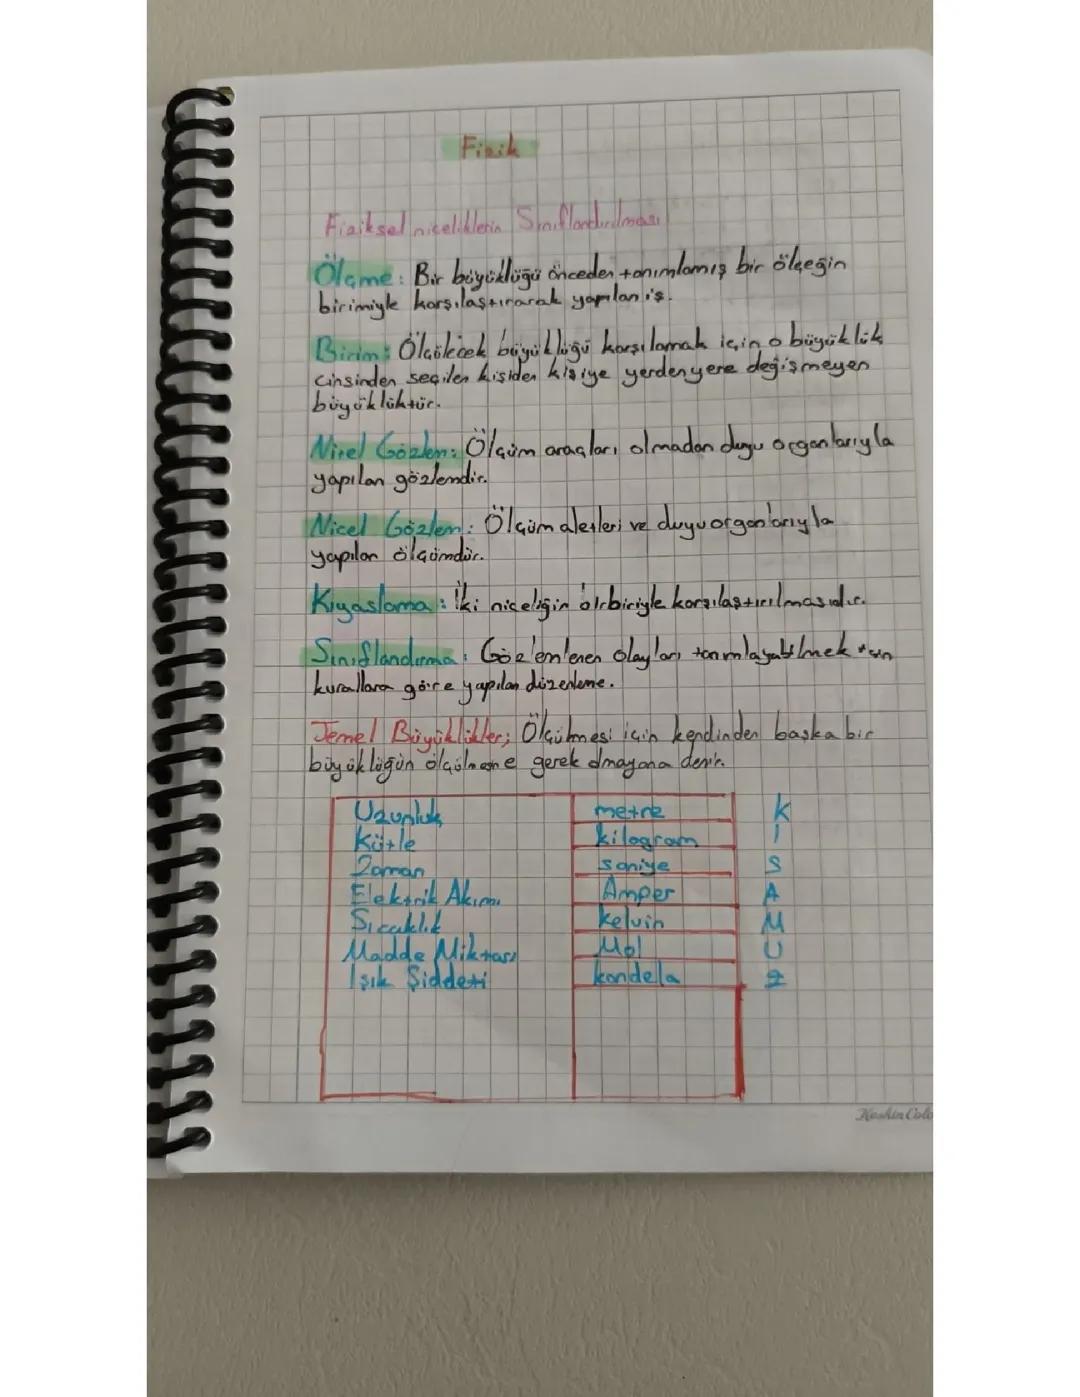 Fizik
Fiziksel niceliklerin Sınıflandırılması
Ölçme: Bir büyüklüğü önceden tanımlamış bir ölçeğin
birimiyle karşılaştırarak yapılan iş.
Birim: Ölçülecek büyüklüğü karşılamak için o büyüklük
cinsinden seçilen kişiden kişiye yerden yere değişmeyen
büyüklüktür.
Nitel Gözlem: Ölçüm araçları olmadan duyu organlarıyla
yapılan gözlemdir.
Nicel Gözlem: Ölçüm aletleri ve duyu organlarıyla
yapılan ölçümdür.
Kıyaslama: İki niceliğin birbiriyle karşılaştırılmasıdır.
Sınıflandırma: Gözlemlenen olayları tanımlayabilmek için
kurallara göre yapılan düzenleme.
Temel Büyüklükler; Ölçülmesi için kendinden başka bir
büyüklüğün ölçülmesine gerek olmayana denir.
Uzunluk metre K
Kütle kilogram I
Zaman saniye S
Elektrik Akımı Amper A
Sıcaklık kelvin M
Madde Miktarı Mol U
Işık Şiddeti kandela Z
Keskin Colo